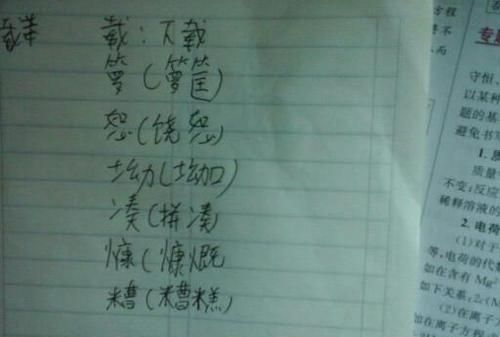 载：下载
箩(箩筐)
恕(饶恕)
凑(拼凑
慷(慷慨
糟(糟糕)
方程
而
专题
守恒、
以某种
题的基
避免书写
1. 质
质量
不变:反应
稀释溶液的
2. 电荷
(1)对于
等,电荷的代数
如在含有 Mg²
如下关系:2c(M
(2)在离子方
如在离子方程式